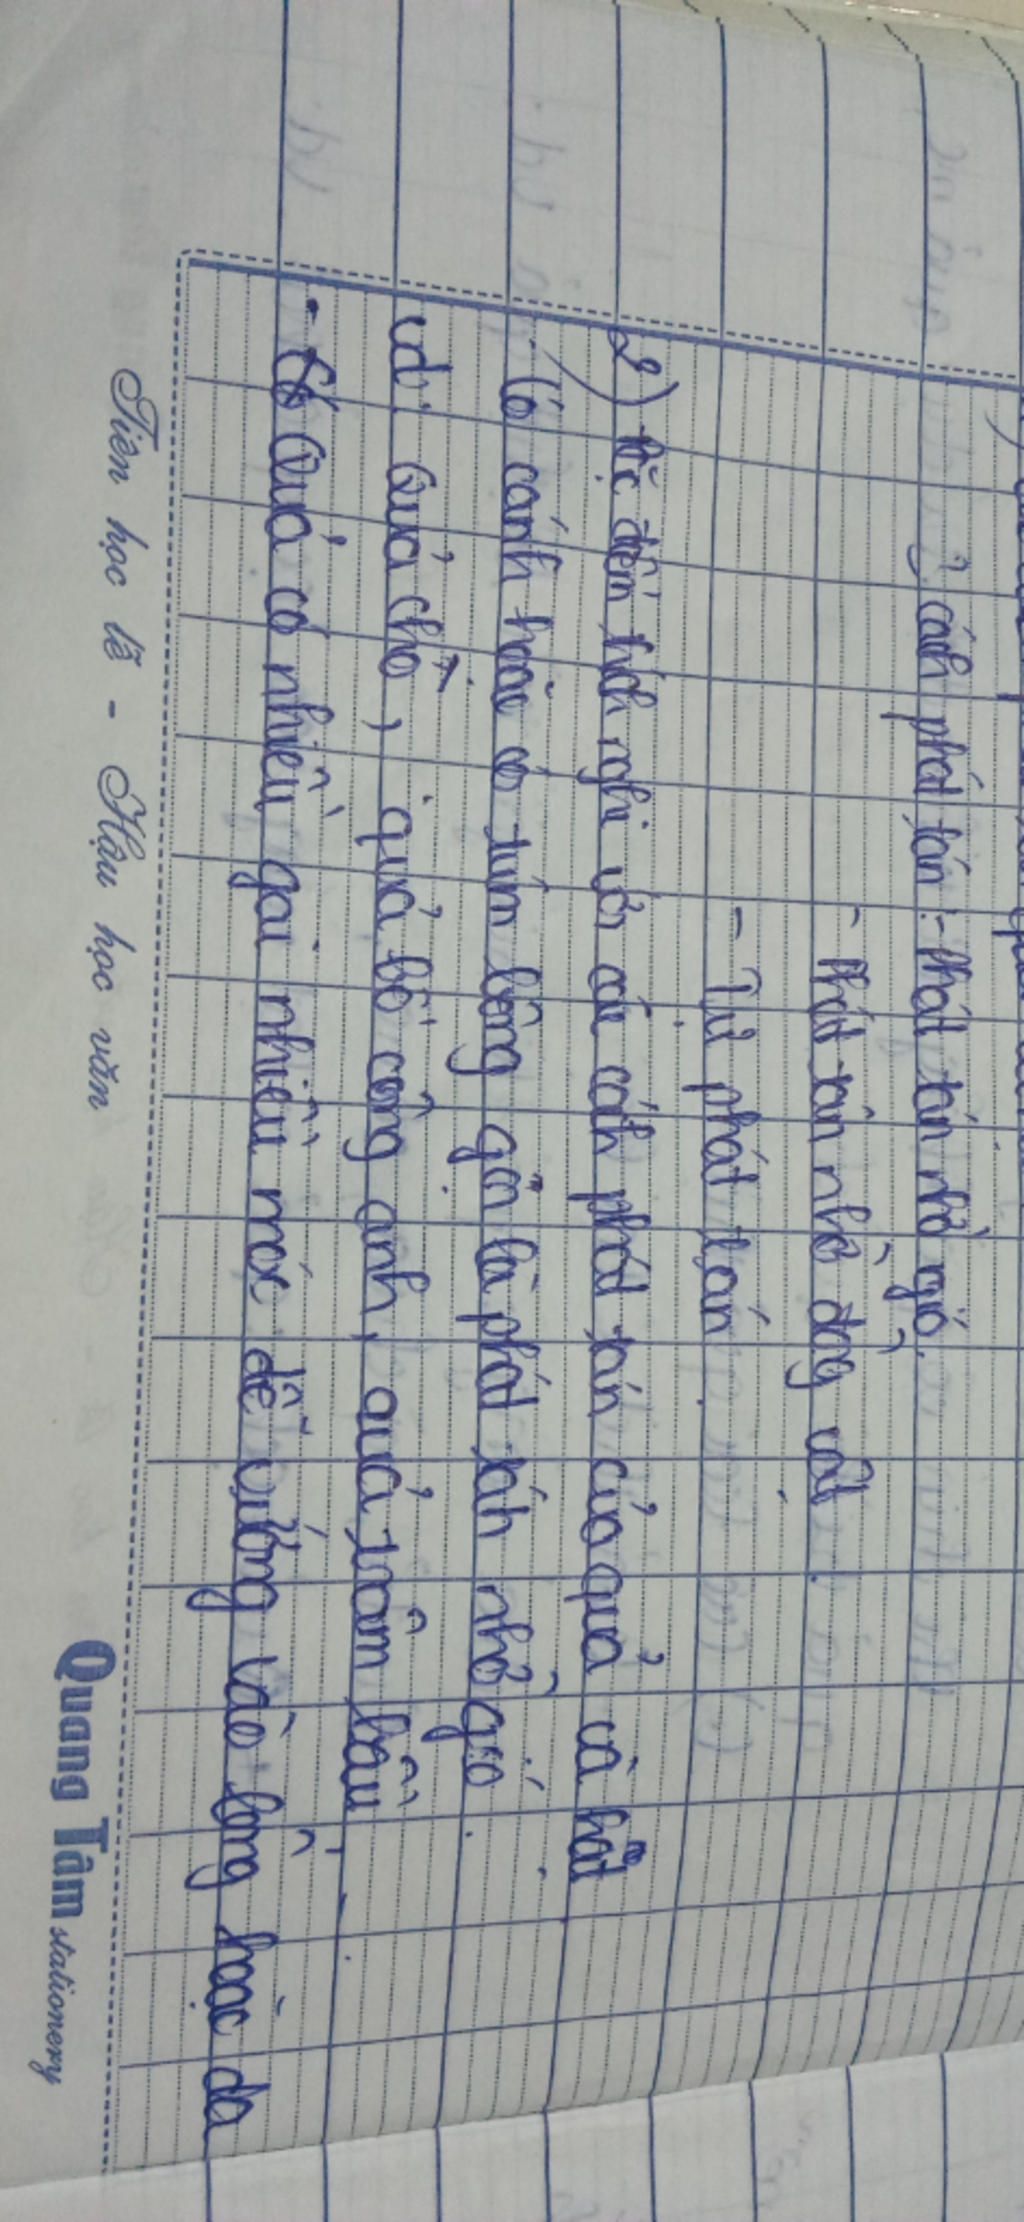 3 cách phát tán: - Phát tán nhờ gió.
- Phát tán nhờ động vật.
- Tự phát tán.
2) Đặc điểm thích nghi với các cách phát tán của quả và hạt
- Có cánh hoặc có túm lông gần là phát tán nhờ gió.
vd: Quả chò, quả bồ công anh, quả trâm bầu.
- Có Quả có nhiều gai nhiều móc dễ vướng vào lông hoặc da
Tiên học lễ - Hậu học văn
Quang Tâm stationery